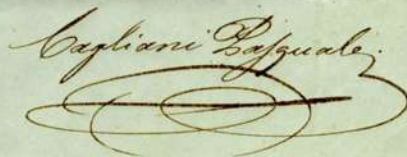 Cagliani Pasquale